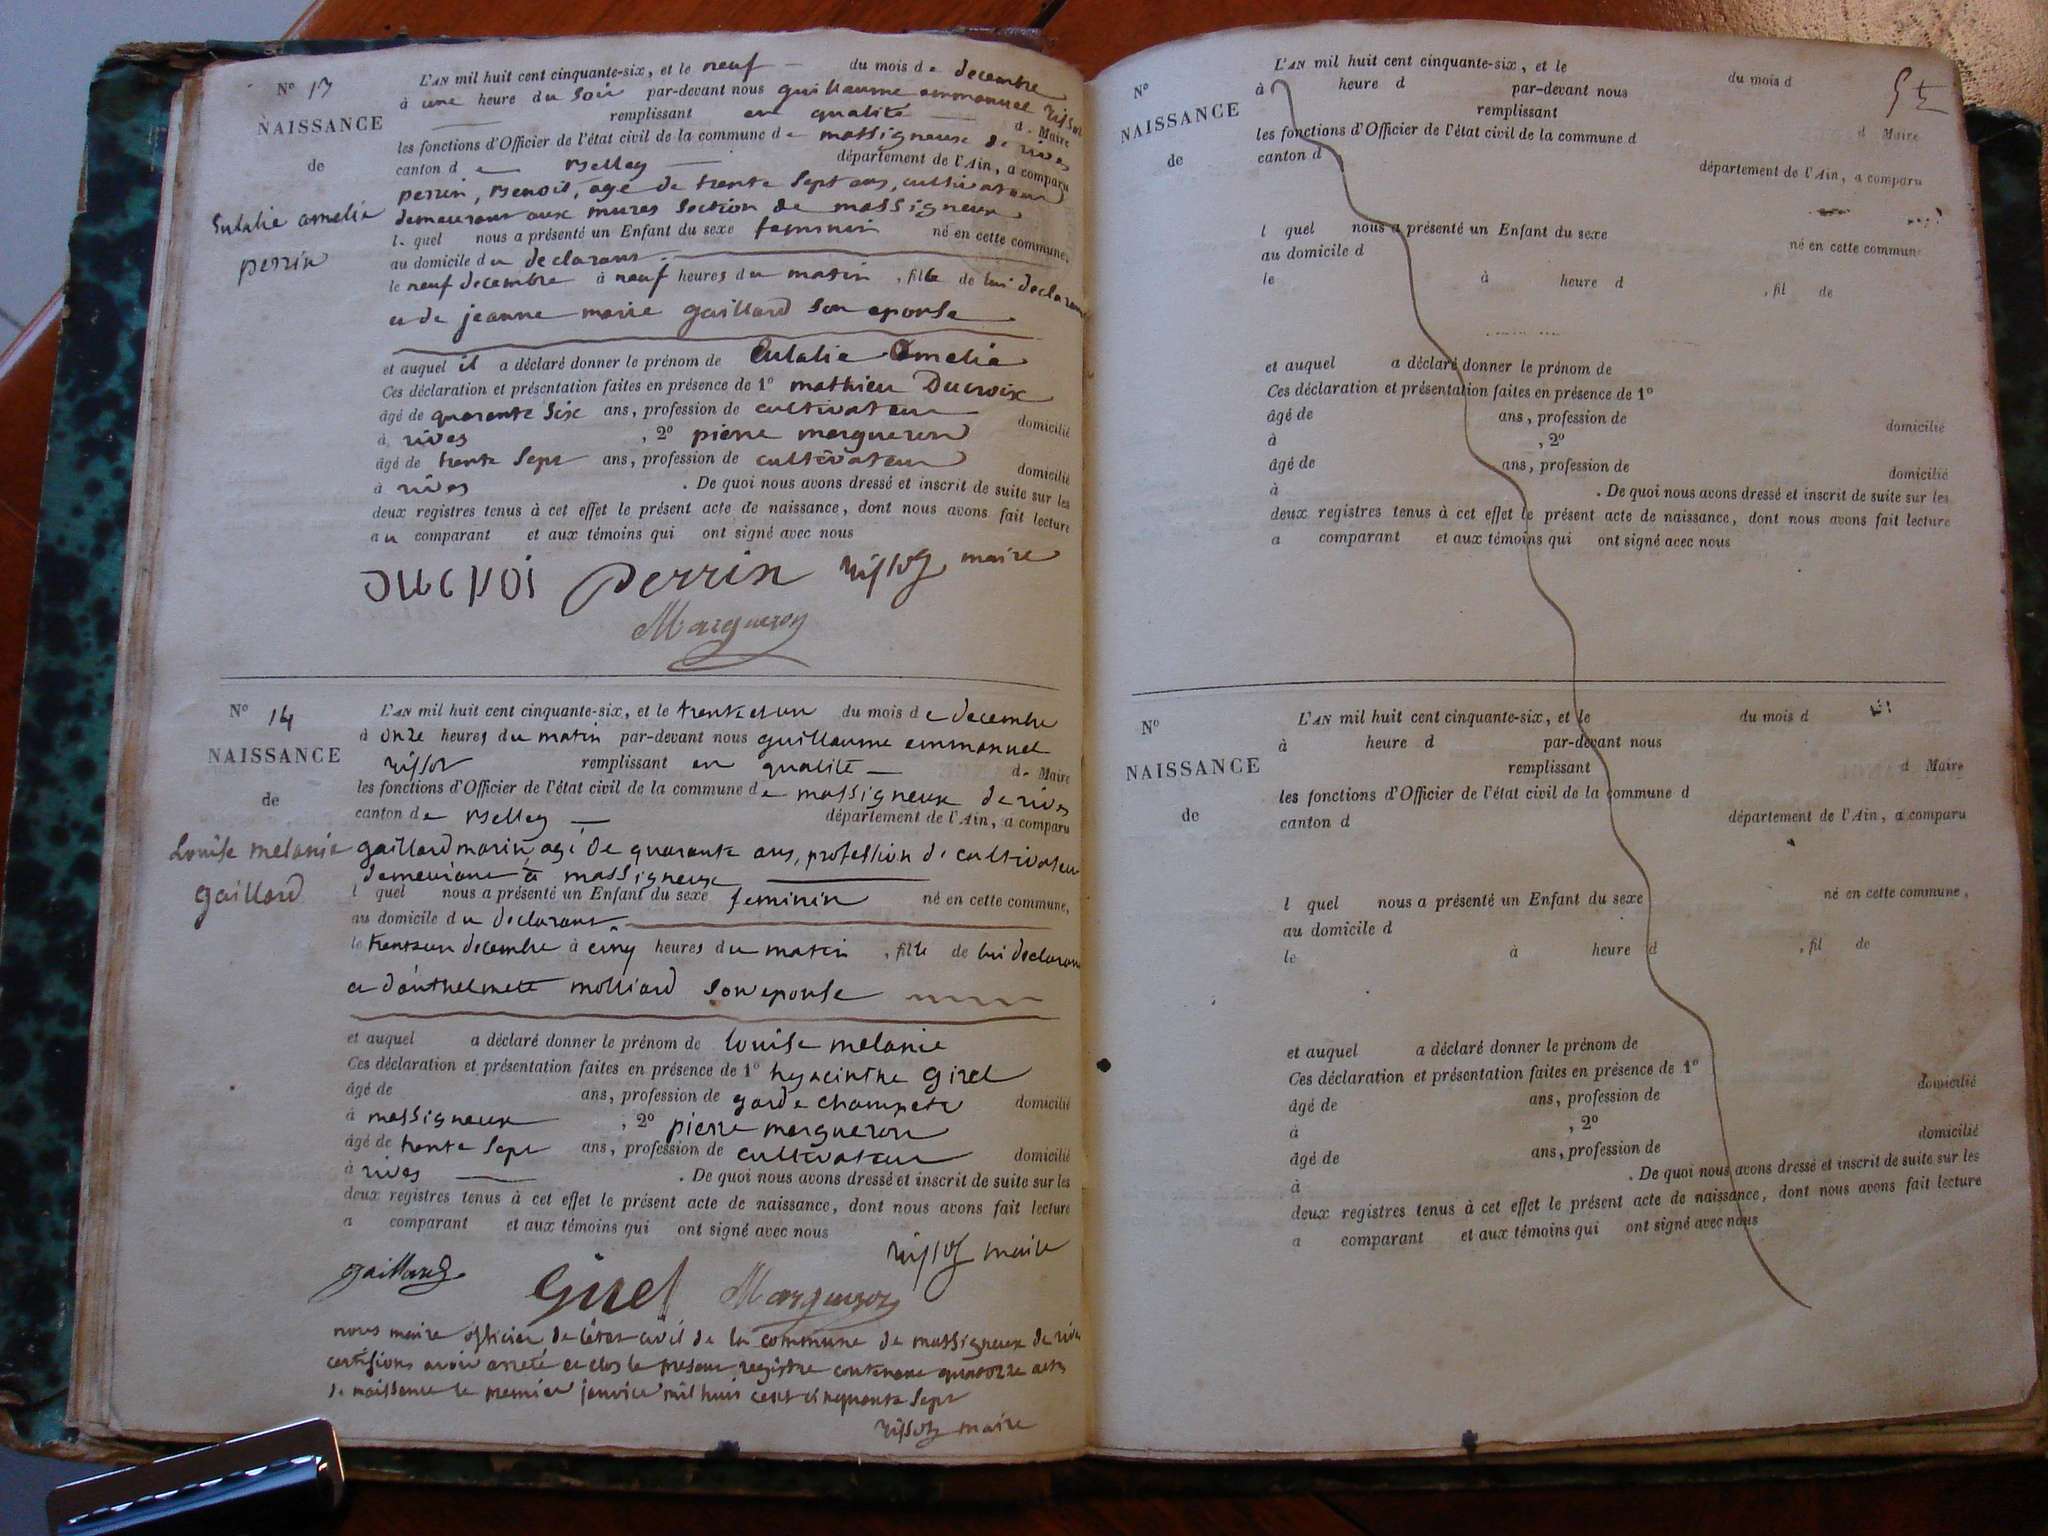 N° 13
NAISSANCE
de
Eulalie amelie
perrin
L'AN mil huit cent cinquante-six, et le neuf du mois de decembre
à une heure du soir par-devant nous guillaume emmanuel
remplissant en qualité de Maire
les fonctions d'Officier de l'état civil de la commune de massigneux de rives
canton de Belley département de l'Ain, a comparu
perrin, Benoit, agé de trente sept ans, cultivateur
demeurant aux mures section de massigneux
lequel nous a présenté un Enfant du sexe feminin né en cette commune,
au domicile du declarant
le neuf decembre à neuf heures du matin, fille de lui declarant
et de jeanne marie gaillard son eponse
et auquel il a déclaré donner le prénom de Eulalie Amelie
Ces déclaration et présentation faites en présence de 1° mathieu Ducroix
âgé de quarante six ans, profession de cultivateur domicilié
à rives, 2° pierre margueron
âgé de trente sept ans, profession de cultivateur domicilié
à rives. De quoi nous avons dressé et inscrit de suite sur les
deux registres tenus à cet effet le présent acte de naissance, dont nous avons fait lecture
au comparant et aux témoins qui ont signé avec nous
perrin maire
Margueron
N° 14
NAISSANCE
de
Louise melanie
gaillard
L'AN mil huit cent cinquante-six, et le trente et un du mois de decembre
à onze heures du matin par-devant nous guillaume emmanuel
remplissant en qualité de Maire
les fonctions d'Officier de l'état civil de la commune de massigneux de rives
canton de Belley département de l'Ain, a comparu
gaillard marin, agé de quarante ans, profession de cultivateur
demeurant à massigneux
l quel nous a présenté un Enfant du sexe feminin né en cette commune,
au domicile du declarant
le trente un decembre à cinq heures du matin, fille de lui declarant
et d'anthelmette molliard son eponse
et auquel a déclaré donner le prénom de louise melanie
Ces déclaration et présentation faites en présence de 1° hyacinthe girel
âgé de ans, profession de garde champetre domicilié
à massigneux, 2° pierre margueron
âgé de trente sept ans, profession de cultivateur domicilié
à rives. De quoi nous avons dressé et inscrit de suite sur les
deux registres tenus à cet effet le présent acte de naissance, dont nous avons fait lecture
a comparant et aux témoins qui ont signé avec nous
maire
gaillard Girel Margueron
nous maire officier de l'état civil de la commune de massigneux de rives
certifions avoir arreté et clos le present registre contenant quatorze actes
de naissance le premier janvier mil huit cent cinquante sept
maire
N°
NAISSANCE
de
L'AN mil huit cent cinquante-six, et le du mois d
à heure d par-devant nous
remplissant d Maire
les fonctions d'Officier de l'état civil de la commune d
canton d département de l'Ain, a comparu
l quel nous a présenté un Enfant du sexe né en cette commune
au domicile d
le à heure d , fil de
et auquel a déclaré donner le prénom de
Ces déclaration et présentation faites en présence de 1°
âgé de ans, profession de domicilié
à , 2°
âgé de ans, profession de domicilié
à . De quoi nous avons dressé et inscrit de suite sur les
deux registres tenus à cet effet le présent acte de naissance, dont nous avons fait lecture
a comparant et aux témoins qui ont signé avec nous
N°
NAISSANCE
de
L'AN mil huit cent cinquante-six, et le du mois d
à heure d par-devant nous
remplissant d Maire
les fonctions d'Officier de l'état civil de la commune d
canton d département de l'Ain, a comparu
l quel nous a présenté un Enfant du sexe né en cette commune,
au domicile d
le à heure d , fil de
et auquel a déclaré donner le prénom de
Ces déclaration et présentation faites en présence de 1°
âgé de ans, profession de domicilié
à , 2°
âgé de ans, profession de domicilié
à . De quoi nous avons dressé et inscrit de suite sur les
deux registres tenus à cet effet le présent acte de naissance, dont nous avons fait lecture
a comparant et aux témoins qui ont signé avec nous